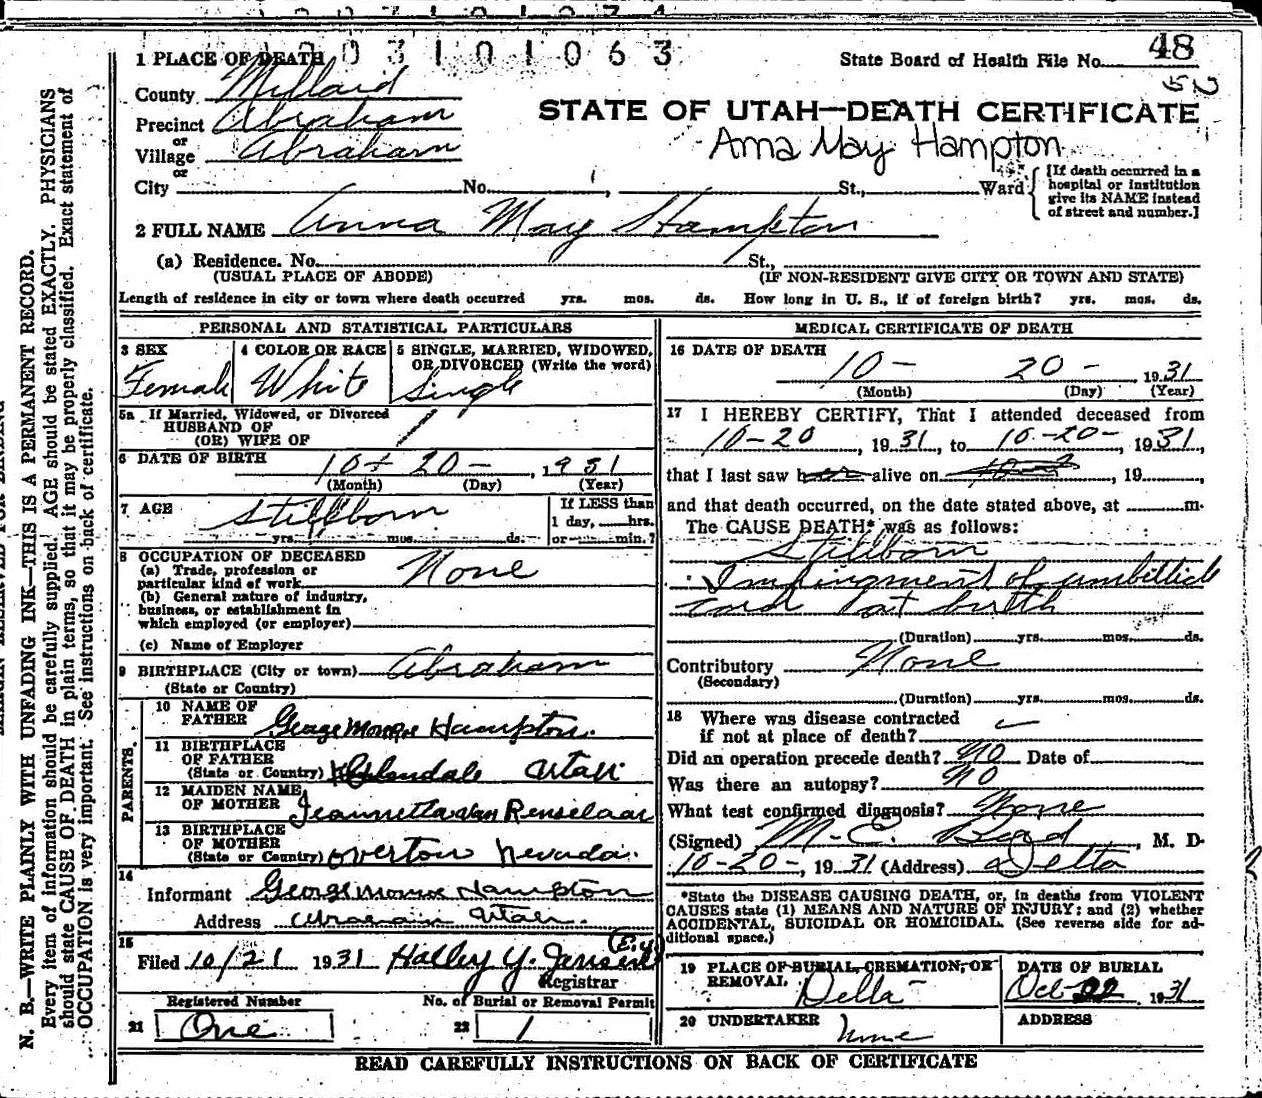 1003101063
1 PLACE OF DEATH
State Board of Health File No. 48
52
County Millard
STATE OF UTAH—DEATH CERTIFICATE
Precinct Abraham
or
Anna May Hampton
Village Abraham
or
City No. , St., Ward
[If death occurred in a
hospital or institution
give its NAME instead
of street and number.]
2 FULL NAME Anna May Hampton
(a) Residence. No. St.,
(USUAL PLACE OF ABODE) (IF NON-RESIDENT GIVE CITY OR TOWN AND STATE)
Length of residence in city or town where death occurred yrs. mos. ds. How long in U. S., if of foreign birth? yrs. mos. ds.
PERSONAL AND STATISTICAL PARTICULARS
3 SEX
Female
4 COLOR OR RACE
White
5 SINGLE, MARRIED, WIDOWED,
OR DIVORCED (Write the word)
Single
5a If Married, Widowed, or Divorced
HUSBAND OF
(OR) WIFE OF
6 DATE OF BIRTH 10 - 20 - , 1931
(Month) (Day) (Year)
7 AGE Stillborn
yrs. mos. ds.
If LESS than
1 day, hrs.
or min.?
8 OCCUPATION OF DECEASED
(a) Trade, profession or
particular kind of work None
(b) General nature of industry,
business, or establishment in
which employed (or employer)
(c) Name of Employer
9 BIRTHPLACE (City or town) Abraham
(State or Country)
PARENTS.
10 NAME OF
FATHER George Monroe Hampton.
11 BIRTHPLACE
OF FATHER
(State or Country) Utah
12 MAIDEN NAME
OF MOTHER Jeannetta Van Renselaar
13 BIRTHPLACE
OF MOTHER
(State or Country) Overton Nevada.
14
Informant George Monroe Hampton
Address Abraham Utah.
15
Filed 10/21 1931 Halley Y. Jensen
Registrar
Registered Number
21 One
No. of Burial or Removal Permit
22 1
MEDICAL CERTIFICATE OF DEATH
16 DATE OF DEATH
10 - 20 - , 1931
(Month) (Day) (Year)
17 I HEREBY CERTIFY, That I attended deceased from
10-20 , 1931, to 10-20- , 1931,
that I last saw h alive on , 19 ,
and that death occurred, on the date stated above, at m.
The CAUSE DEATH* was as follows:
Stillborn
Impingment of umbillick
cord at birth
(Duration) yrs. mos. ds.
Contributory None
(Secondary)
(Duration) yrs. mos. ds.
18 Where was disease contracted
if not at place of death?
Did an operation precede death? No Date of
Was there an autopsy? No
What test confirmed diagnosis? None
(Signed) M. E. Bird, M. D.
10-20-, 1931 (Address) Delta
*State the DISEASE CAUSING DEATH, or, in deaths from VIOLENT
CAUSES state (1) MEANS AND NATURE OF INJURY; and (2) whether
ACCIDENTAL, SUICIDAL OR HOMICIDAL. (See reverse side for ad-
ditional space.)
19 PLACE OF BURIAL, CREMATION, OR
REMOVAL Delta
DATE OF BURIAL
Oct 22 1931
20 UNDERTAKER None
ADDRESS
READ CAREFULLY INSTRUCTIONS ON BACK OF CERTIFICATE
N. B.—WRITE PLAINLY WITH UNFADING INK—THIS IS A PERMANENT RECORD.
Every item of information should be carefully supplied. AGE should be stated EXACTLY. PHYSICIANS
should state CAUSE OF DEATH in plain terms, so that it may be properly classified. Exact statement of
OCCUPATION is very important. See instructions on back of certificate.